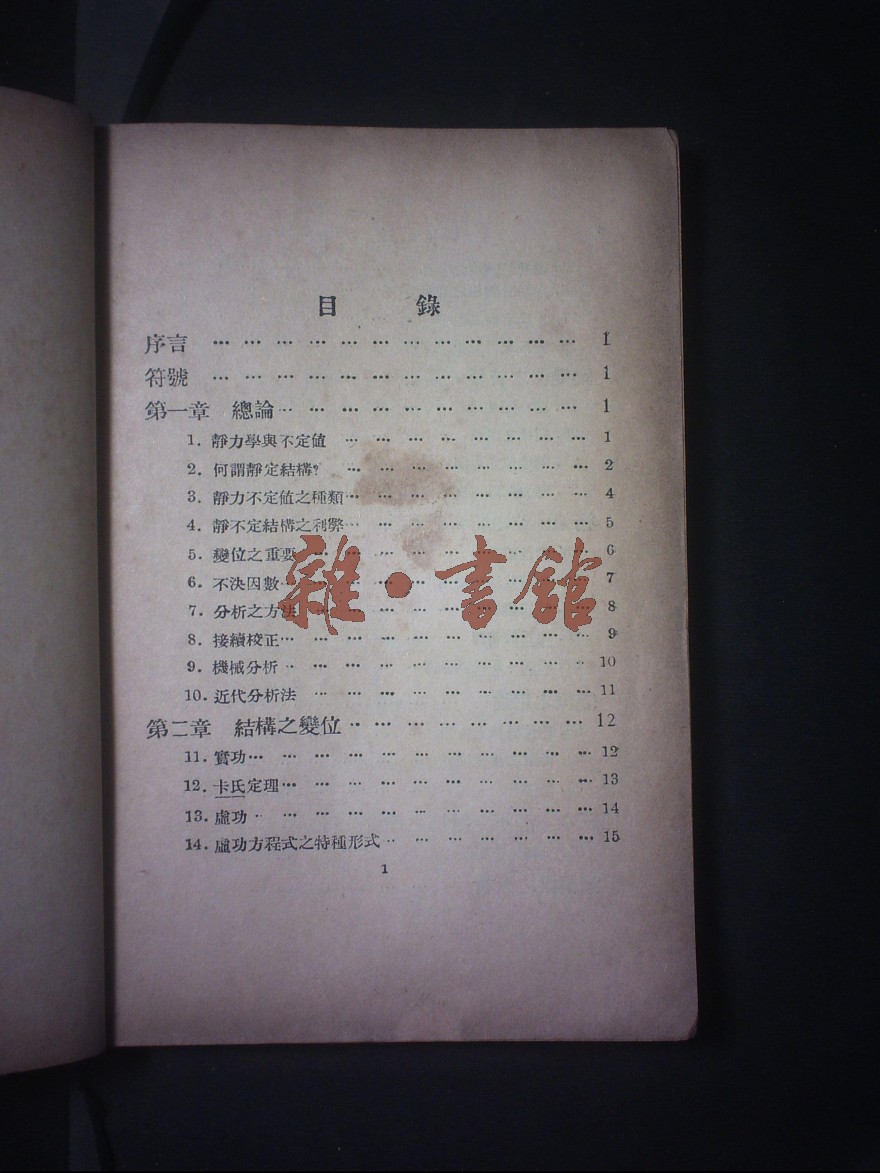 目 錄
序言 … … … … … … … … … … … … 1
符號 … … … … … … … … … … … … 1
第一章 總論 … … … … … … … … … … 1
1. 靜力學與不定值 … … … … … … … … 1
2. 何謂靜定結構? … … … … … … … … 2
3. 靜力不定值之種類 … … … … … … … … 4
4. 靜不定結構之利弊 … … … … … … … … 5
5. 變位之重要 … … … … … … … … … 6
6. 不決因數 … … … … … … … … … … 7
7. 分析之方法 … … … … … … … … … 8
8. 接續校正 … … … … … … … … … … 9
9. 機械分析 … … … … … … … … … … 10
10. 近代分析法 … … … … … … … … … 11
第二章 結構之變位 … … … … … … … … 12
11. 實功 … … … … … … … … … … … 12
12. 卡氏定理 … … … … … … … … … … 13
13. 虛功 … … … … … … … … … … … 14
14. 虛功方程式之特種形式 … … … … … … … 15
1
雜·書館